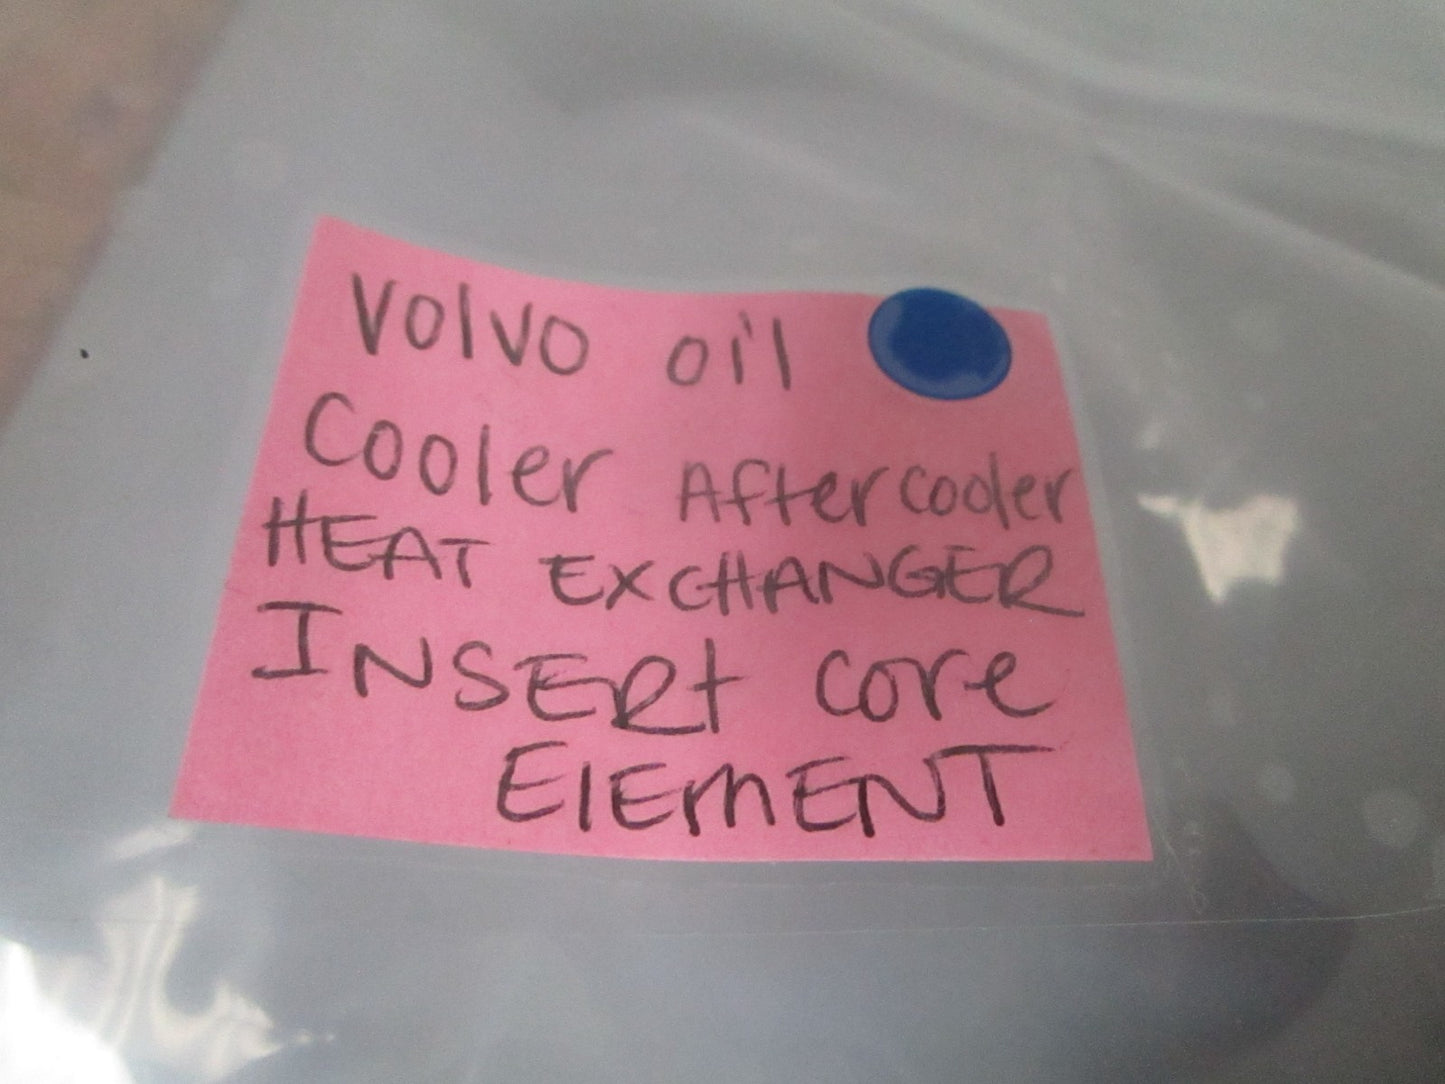 Volvo oil
Cooler Aftercooler
HEAT EXCHANGER
INSERt core
ElEmENT